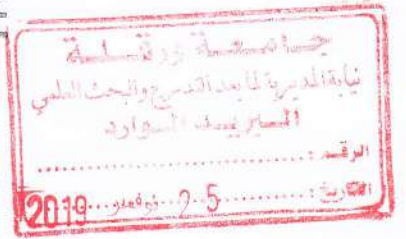 جامعة ورقلة
نيابة المديرية لما بعد التدرج والبحث العلمي
البريد الوارد
الرقم : ........................
التاريخ : 25 نوفمبر 2019